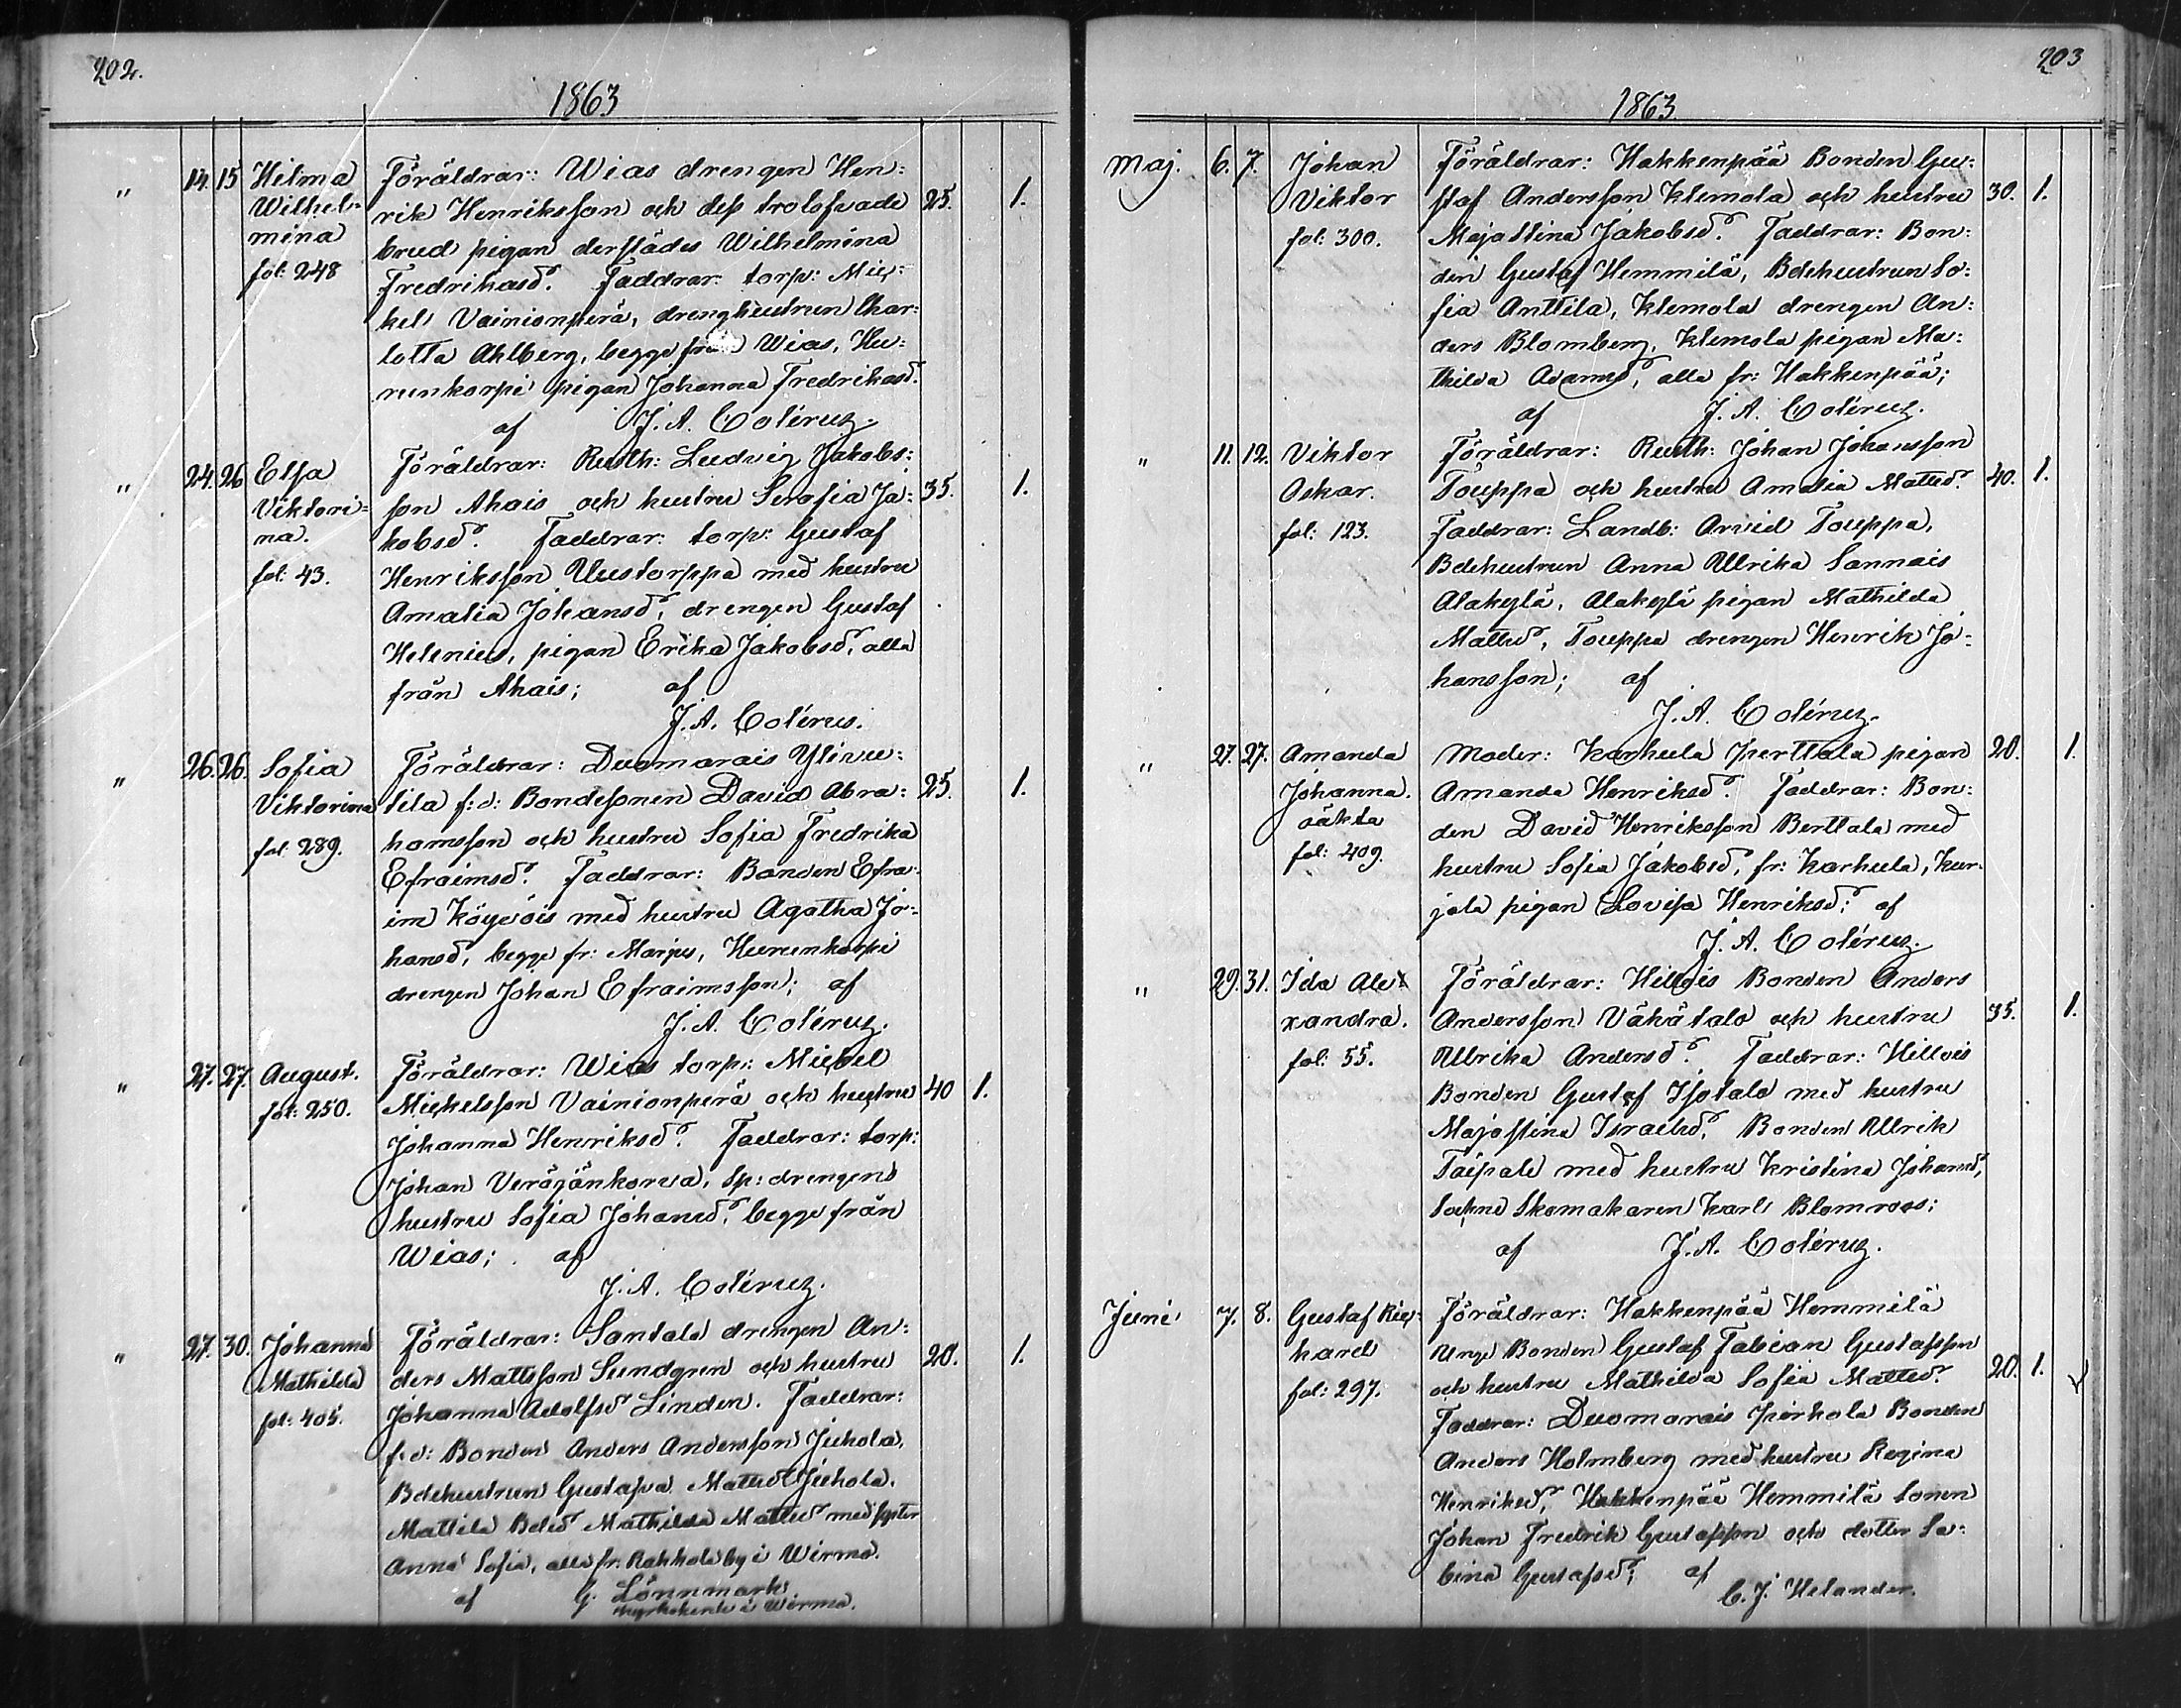 202.
1863
" 14. 15 Hilma Föräldrar: Wias drengen Hen:
Wilhel= rik Henriksson och dess trolofvade 25. 1.
mina brud pigan derstädes Wilhelmina
fol: 248 Fredriksd:. Faddrar: torp: Mic:
kel Vainionperä, drenghustrun Char:
lotta Ahlberg, begge från Wias, Hu:
runkorpi pigan Johanna Fredriksd:.
af J. A. Colérus.
" 24. 26 Elsa Föräldrar: Rusth: Ludvig Jakobs:
Viktori= son Ahais och hustru Serafia Ja: 35. 1.
na. kobsd:. Faddrar: torp: Gustaf
fol: 43. Henriksson Uustorppa med hustru
Amalia Johansd:, drengen Gustaf
Helenius, pigan Erika Jakobsd:, alla
från Ahais; af
J. A. Colérus.
" 26. 26. Sofia Föräldrar: Duomarais Ylivu:
Viktorina tila f:d: Bondesonen David Abra: 25. 1.
fol: 289. hamsson och hustru Sofia Fredrika
Efraimsd:. Faddrar: Bonden Efra:
im Köyvöis med hustru Agatha Jo:
hansd, begge fr: Marjus, Hurunkorpi
drengen Johan Efraimsson; af
J. A. Colérus.
" 27. 27. August. Föräldrar: Wias torp: Mickel
fol: 250. Mickelsson Vainionperä och hustru 40 1.
Johanna Henriksd:. Faddrar: torp:
Johan Veräjänkorva, Sp: drengens
hustru Sofia Johansd:, begge från
Wias; af
J. A. Colérus.
" 27. 30. Johanna Föräldrar: Santala drengen An:
Mathilda ders Mattsson Sundgren och hustru 20. 1.
fol: 405. Johanna Adolfsd: Linden. Faddrar:
f:d: Bonden Anders Andersson Juhola,
Bdehustrun Gustafva Mattsd: Juhola.
Mattila Bdesd: Mathilda Mattsd: med syster
Anna Sofia, alla fr: Rahkola by i Wirmo.
af G. Lönnmark
kyrkoherde i Wirmo.
203
1863
Maj. 6. 7. Johan Föräldrar: Hakkenpää Bonden Gu:
Viktor staf Andersson Klemola och hustru 30. 1.
fol: 300. Majastina Jakobsd:. Faddrar: Bon:
den Gustaf Hemmilä, Bdehustrun So:
fia Anttila, Klemola drengen An:
ders Blomberg, Klemola pigan Ma:
thilda Adamsd:, alla fr: Hakkenpää;
af J. A. Colérus.
" 11. 12. Viktor Föräldrar: Rusth: Johan Johansson
Oskar. Touppa och hustru Amalia Mattsd:. 40. 1.
fol: 123. Faddrar: Landb: Arvid Touppa,
Bdehustrun Anna Ullrika Sannais
Alakylä, Alakylä pigan Mathilda
Mattsd:, Touppa drengen Henrik Jo=
hansson; af
J. A. Colérus.
" 27. 27. Amanda Moder: Karhula Perttala pigan 20. 1.
Johanna. Amanda Henriksd:. Faddrar: Bon:
oäkta den David Henriksson Berttala med
fol: 409. hustru Sofia Jakobsd:, fr: Karhula, Kur:
jala pigan Lovisa Henriksd:; af
J. A. Colérus.
" 29. 31. Ida Ale Föräldrar: Hillois Bonden Anders
xandra. Andersson Vähätalo och hustru 35. 1.
fol: 55. Ullrika Andersd:. Faddrar: Hillois
Bonden Gustaf Isotalo med hustru
Majastina Israelsd:, Bonden Ullrik
Taipale med hustru Kristina Johansd:,
Sockne Skomakaren Karl Blomroos;
af J. A. Colérus.
Juni 7. 8. Gustaf Ric: Föräldrar: Hakkenpää Hemmilä
hard unge Bonden Gustaf Fabian Gustafsson
fol: 297. och hustru Mathilda Sofia Mattsd:. 20. 1.
Faddrar: Duomarais Pirhola Bonden
Anders Holmberg med hustru Regina
Henriksd:, Hakkenpää Hemmilä sonen
Johan Fredrik Gustafsson och dotter Sa:
bina Gustafsd:; af
C. J. Helander.